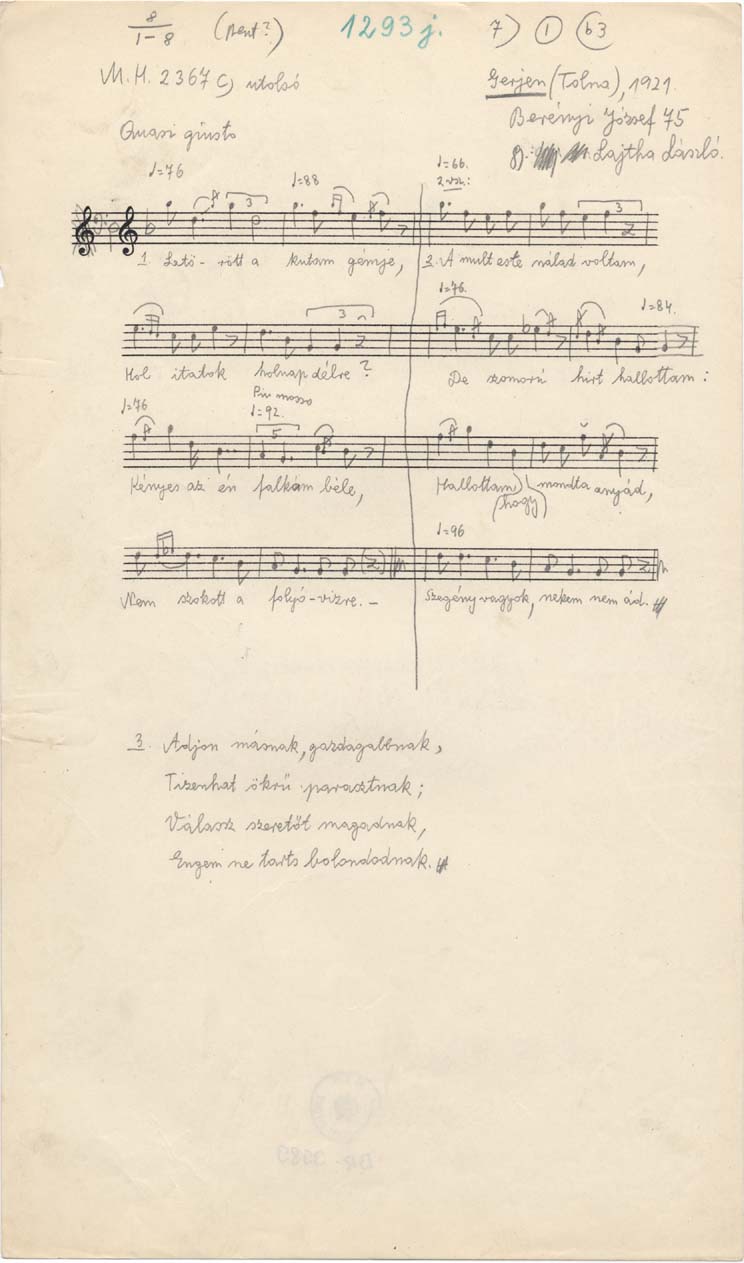 8 (Pent?) 1293 j. 7) 1 b3
1-8
M.H. 2367 c) utolsó Gerjen (Tolna), 1921.
Berényi József 75
Quasi giusto
Gy.: Lajtha László.
♩=76 ♩=88 ♩=66.
2. vsz.:
3 3
1. Letö-rött a kutam gémje, 2. A mult este nálad voltam,
♩=76. ♩=84.
3
Hol itatok holnap délre? De szomorú hirt hallottam:
♩=76 Più mosso
♩=92.
5
Kényes az én falkám béle, Hallottam, mondta anyád,
(hogy)
♩=96
Nem szokott a folyó-vizre. – Szegény vagyok, nekem nem ád.
3. Adjon másnak, gazdagabbnak,
Tizenhat ökrű parasztnak;
Válassz szeretőt magadnak,
Engem ne tarts bolondodnak.